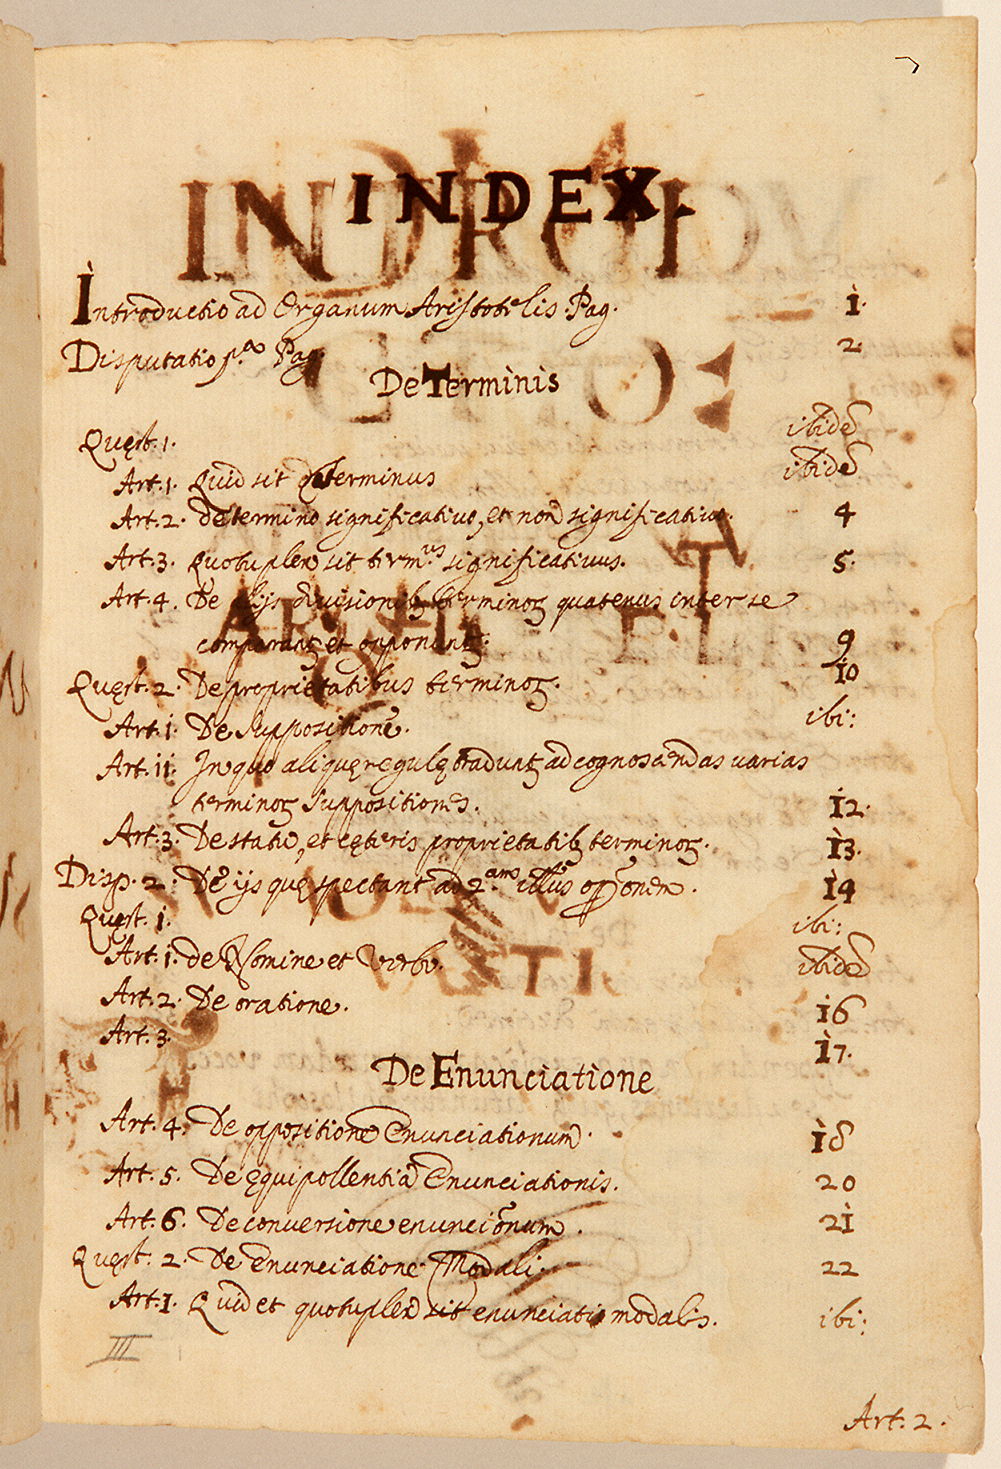 INDEX.
Introductio ad Organum Aristotelis Pag. 1.
Disputatio pª Pag. 2
De Terminis
Quęst. 1. ibidē
Art. 1. Quid sit terminus ibidē
Art. 2. de termino significativo, et non significativo. 4
Art. 3. Quotuplex sit termus significativus. 5.
Art. 4. De alijs divisionibꝫ terminoꝝ quatenus inter se
comparantꝛ et opponuntꝛ. 9
Quęst. 2. De proprietatibus terminoꝝ. 10
Art. 1. De suppositione. ibi:
Art. ii. In quo aliquę regulę traduntꝛ ad cognoscendas varias
terminoꝝ suppositiones. 12.
Art. 3. De statu, et cęteris proprietatibꝫ terminoꝝ. 13.
Disp. 2. De ijs quę spectant ad 2.am illius opp̄onem. 14
Quęst. 1. ibi:
Art. 1. de Nomine et Verbo. ibidē
Art. 2. De oratione. 16
Art. 3. 17.
De Enunciatione
Art. 4. De oppositione Enunciationum. 18
Art. 5. De ęquipollentia Enunciationis. 20
Art. 6. De conversione enunciōnum. 21
Quęst. 2. De Enunciatione Modali. 22
Art. 1. Quid et quotuplex sit enunciatio modalis. ibi:
III
Art. 2.